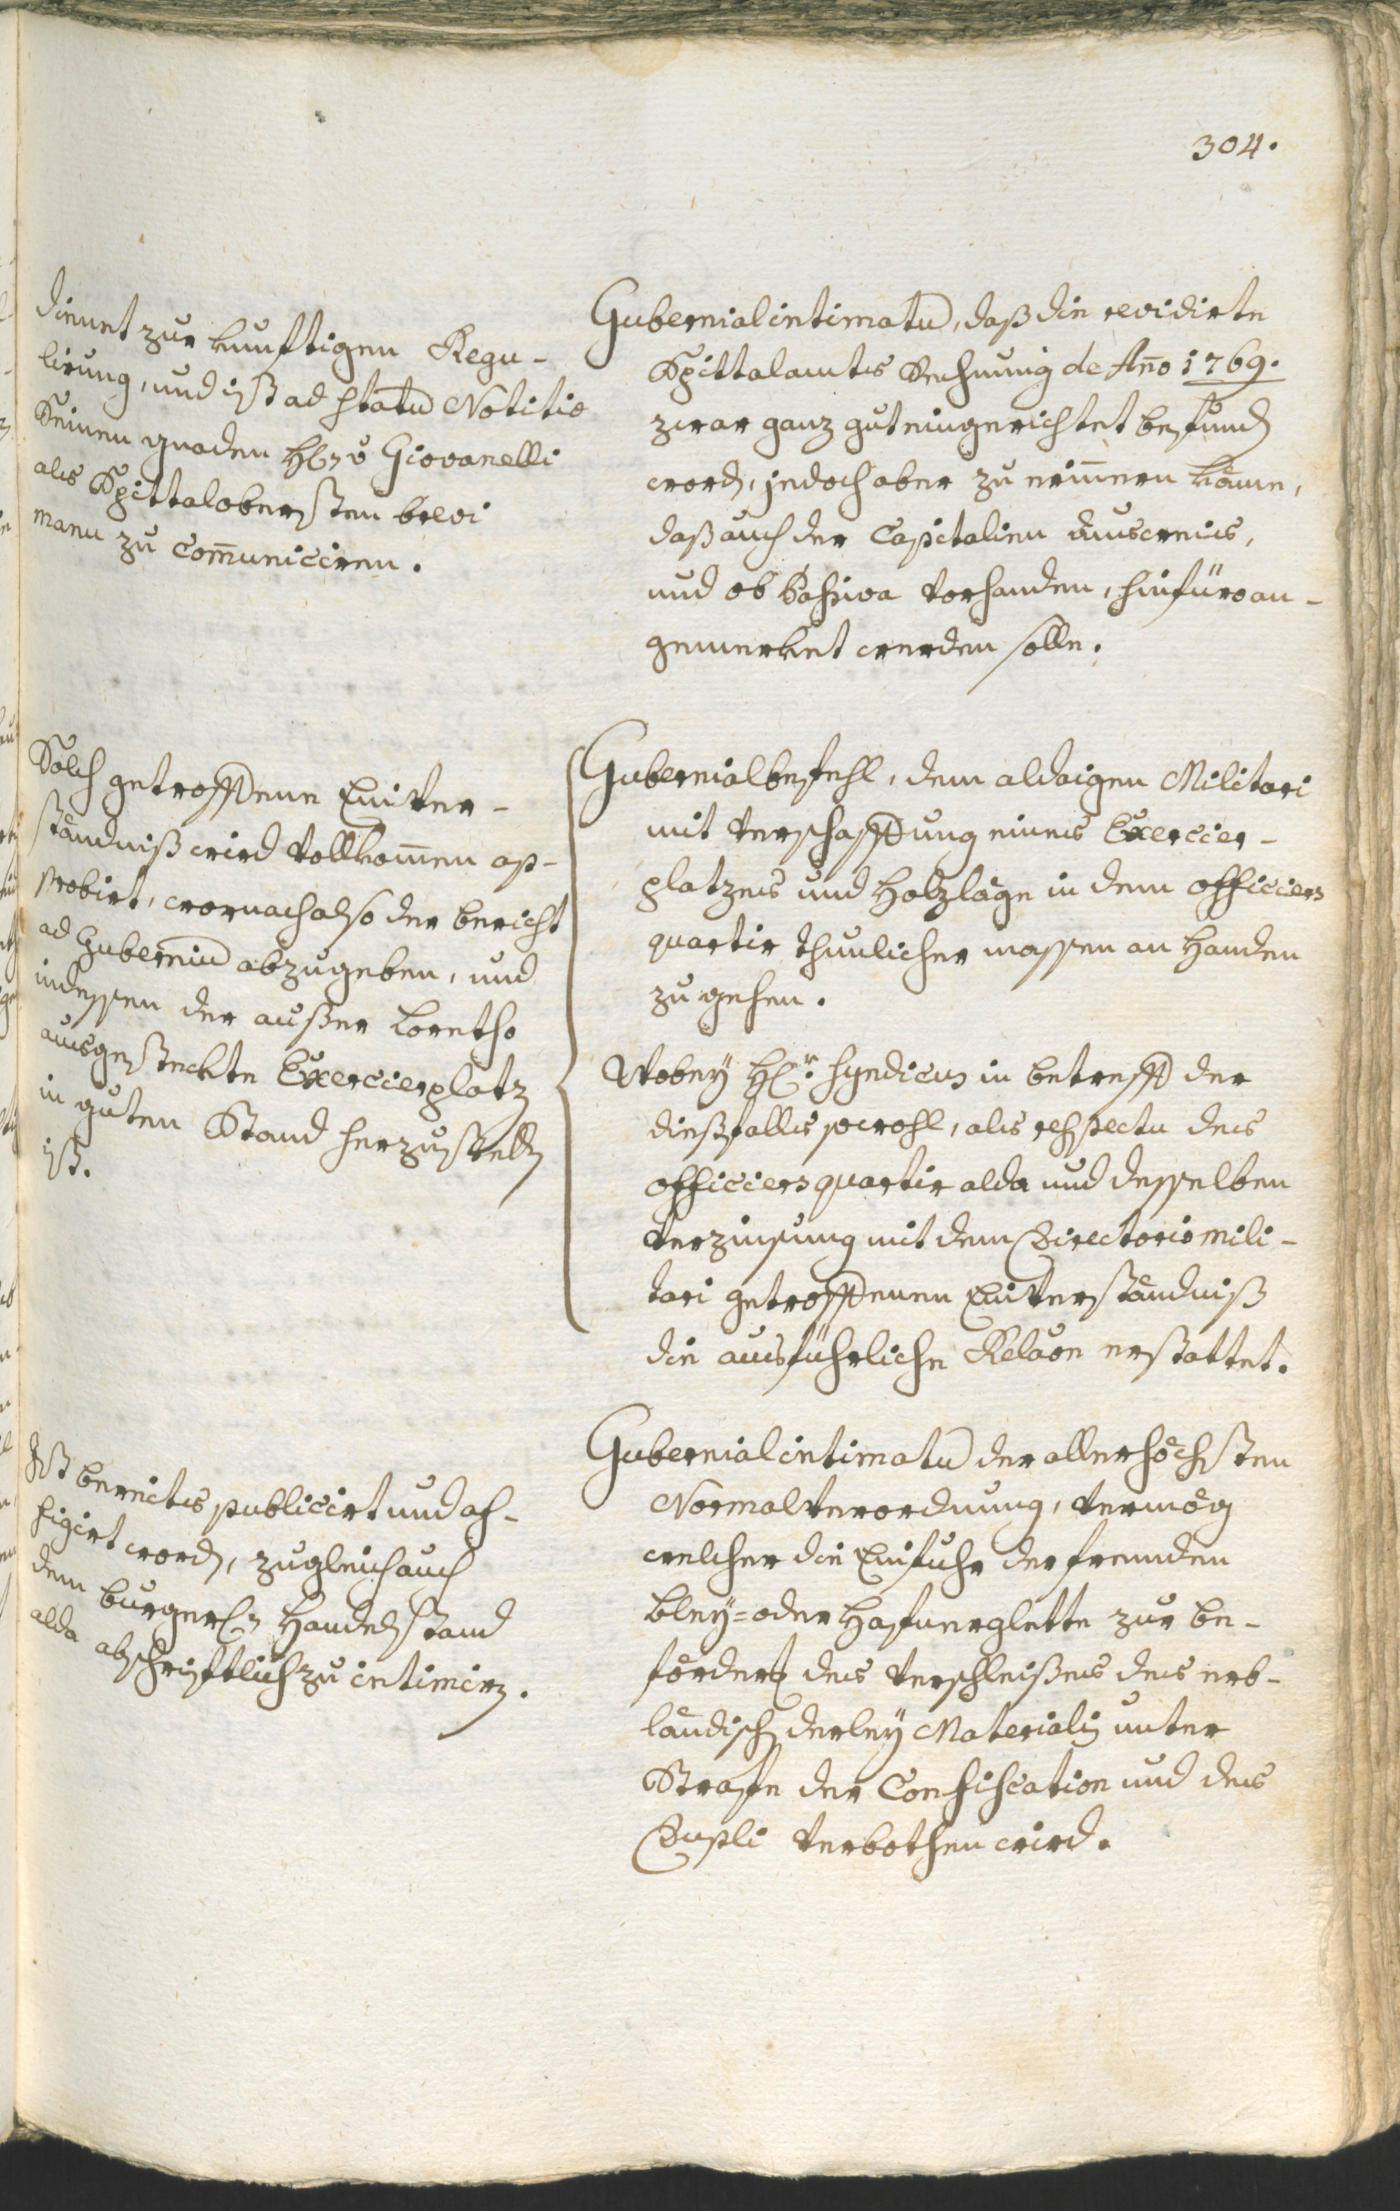 304.
dienet zur kunftigen Regu-
lirung, und ist ad statum Notitiæ
Seinen gnaden H: v Giovanelli
als Spittalobersten brevi
manu zu com̄uniciren.
Gubernialintimatum, daß die revidirte
Spittalamts Rechnung de Año 1769.
zwar ganz gut eingerichtet befunden
worden, jedoch aber zu erin̄ern kom̄e,
daß auch der Capitalien Ausweis,
und ob Passiva vorhanden, hinfüro an-
gemerket werden solle.
Solch getroffene Einver-
ständniß wird vollkom̄en ap-
probirt, wornach also der bericht
ad Gubernium abzugeben, und
indessen der außer Loretho
ausgesteckte Exercierplatz
in guten Stand herzustellen
ist.
Gubernialbefehl, dem aldaigen Militari
mit verschaffung eines Exercier-
platzes und Holzläge in dem officiers
quartir thunlicher massen an Handen
zu gehen.
Wobey H.r Syndicus in betreff der
dießfalls sowohl, als respectu des
officiersquartir alda und desselben
verzinsung mit dem Directorio mili-
tari getroffenen Einverständniß
die ausführliche Relaõn erstattet.
Ist bereits publicirt und af-
figirt worden, zugleich auch
dem burgerl: Handelsstand
alda abschriftlich zu intimiren.
Gubernialintimatum der allerhöchsten
Normalverordnung, vermög
welcher die Einfuhr der fremden
Bley= oder Hafnerglette zur be-
förderung des verschleißes des erb-
ländischen derley Materialis unter
Strafe der Confiscation und des
Dupli verbothen wird.